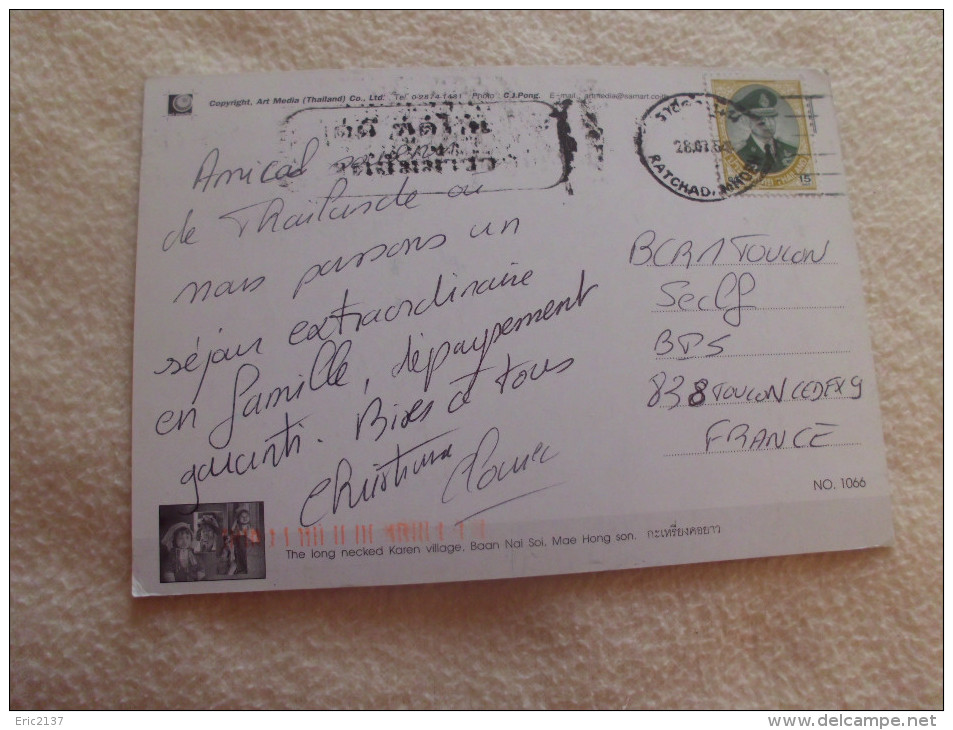 Copyright, Art Media (Thailand) Co., Ltd. Tel 0-2874-1481 Photo: C.J.Pong. E-mail: artmedia@siamart.com
28.07.54
RATCHADAMNOEN
15
Amical souvenir
de Thaïlande où
nous passons un
séjour extraordinaire
en famille, dépaysement
garanti. Bises à tous
Christiane
BCRM TOULON
BP5
838 TOULON CEDEX 9
FRANCE
NO. 1066
The long necked Karen village. Baan Nai Soi. Mae Hong son. กะเหรี่ยงคอยาว
Eric2137
delcampe.net